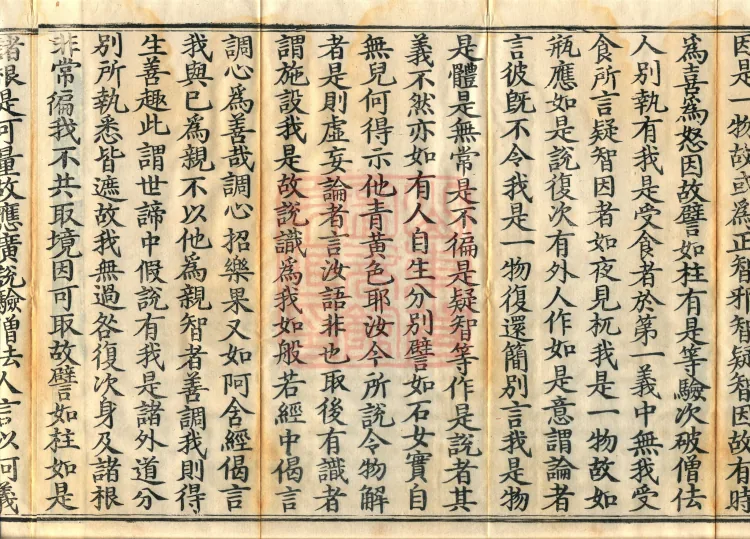 因是一物故或爲正智邪智疑智因故有時
爲喜爲怒因故譬如柱有是等驗次破僧佉
人別執有我是受食者於第一義中無我受
食所言疑智因者如夜見杌我是一物故如
瓶應如是說復次有外人作如是意謂論者
言彼旣不令我是一物復還簡別言我是物
是體是無常是不徧是疑智等作是說者其
義不然亦如有人自生分別譬如石女實自
無兒何得示他青黃色耶汝今所說令物解
者是則虛妄論者言汝語非也取後有識者
謂施設我是故說識爲我如般若經中偈言
調心爲善哉調心招樂果又如阿含經偈言
我與已爲親不以他爲親智者善調我則得
生善趣此謂世諦中假說有我是諸外道分
別所執悉皆遮故我無過咎復次身及諸根
非常徧我不共取境因可取故譬如柱如是
諸根是可量故應廣說驗僧佉人言以何義